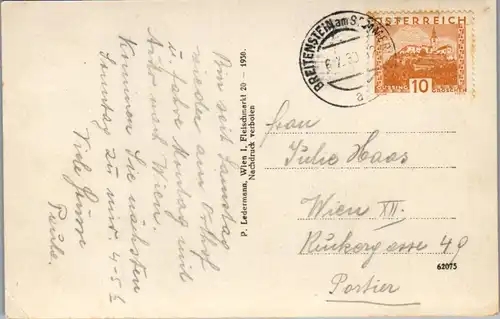 Bin seit Samstag
wieder am Otthof
u. fahre Montag mit
Auto nach Wien.
Kommen Sie nächsten
Sonntag zu mir. 4-5 h
Viele Grüsse
Paula.
P. Ledermann, Wien I, Fleischmarkt 20 – 1930.
Nachdruck verboten
BREITENSTEIN am SEMMER
6.V. 30
a
ÖSTERREICH
10
GROSCHEN
Frau
Julie Haas
Wien XII.
Ruckergasse 49
Portier
62075